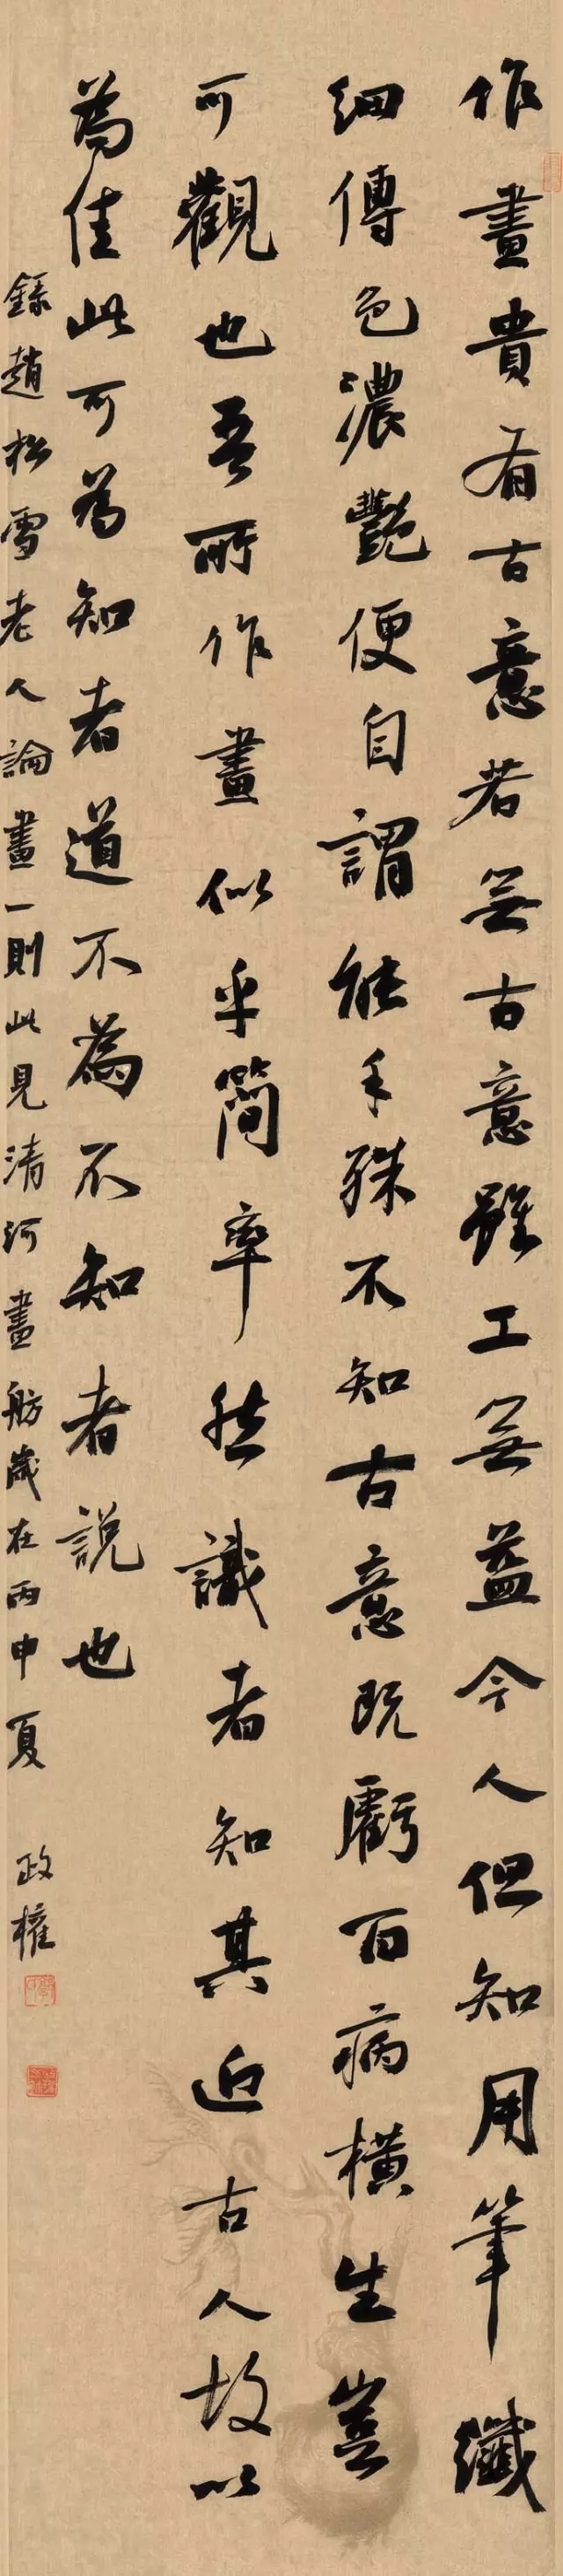 作畫貴有古意若無古意雖工無益今人但知用筆纖
細傅色濃艷便自謂能手殊不知古意既虧百病橫生豈
可觀也吾所作畫似乎簡率然識者知其近古人故以
為佳此可為知者道不為不知者說也
錄趙松雪老人論畫一則此見清河畫舫歲在丙申夏
政權